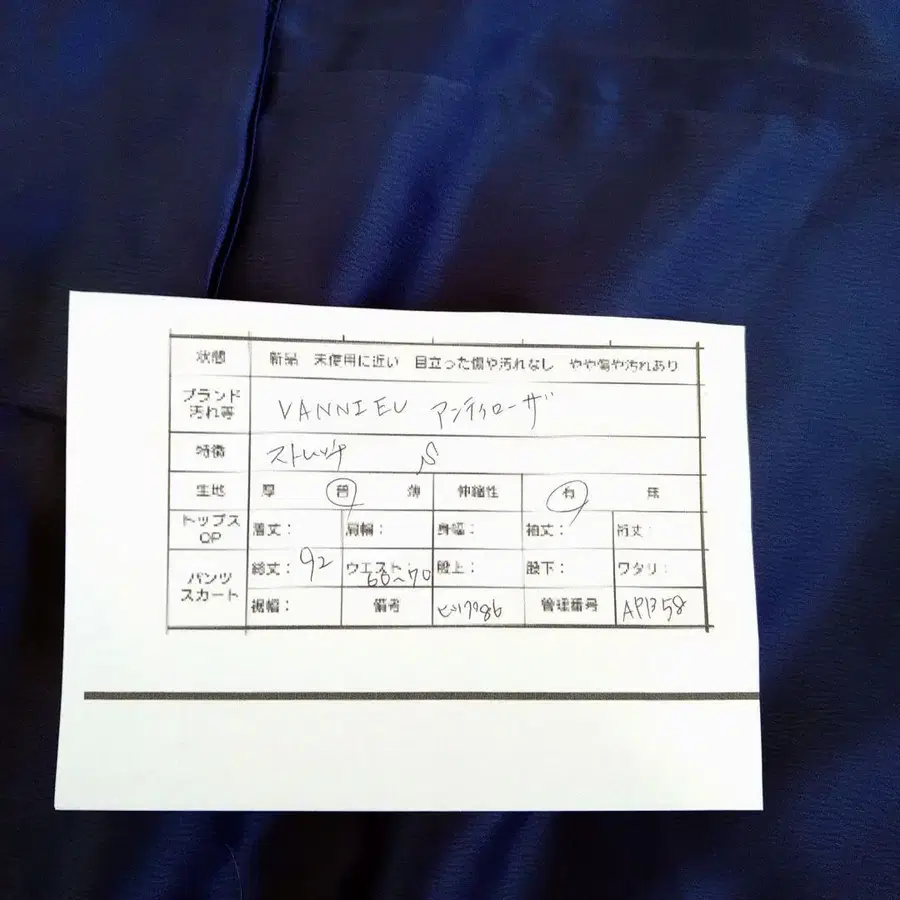 状態 新品 未使用に近い 目立った傷や汚れなし やや傷や汚れあり
ブランド 汚れ等 VANNIEU アンティローザ
特徴 ストレッチ S
生地 厚 普 薄 伸縮性 有 無
トップス OP 着丈： 肩幅： 身幅： 袖丈： 裄丈：
パンツ スカート 総丈：92 ウエスト：60〜70 股上： 股下： ワタリ：
裾幅： 備考 ヒップ86 管理番号 APB58